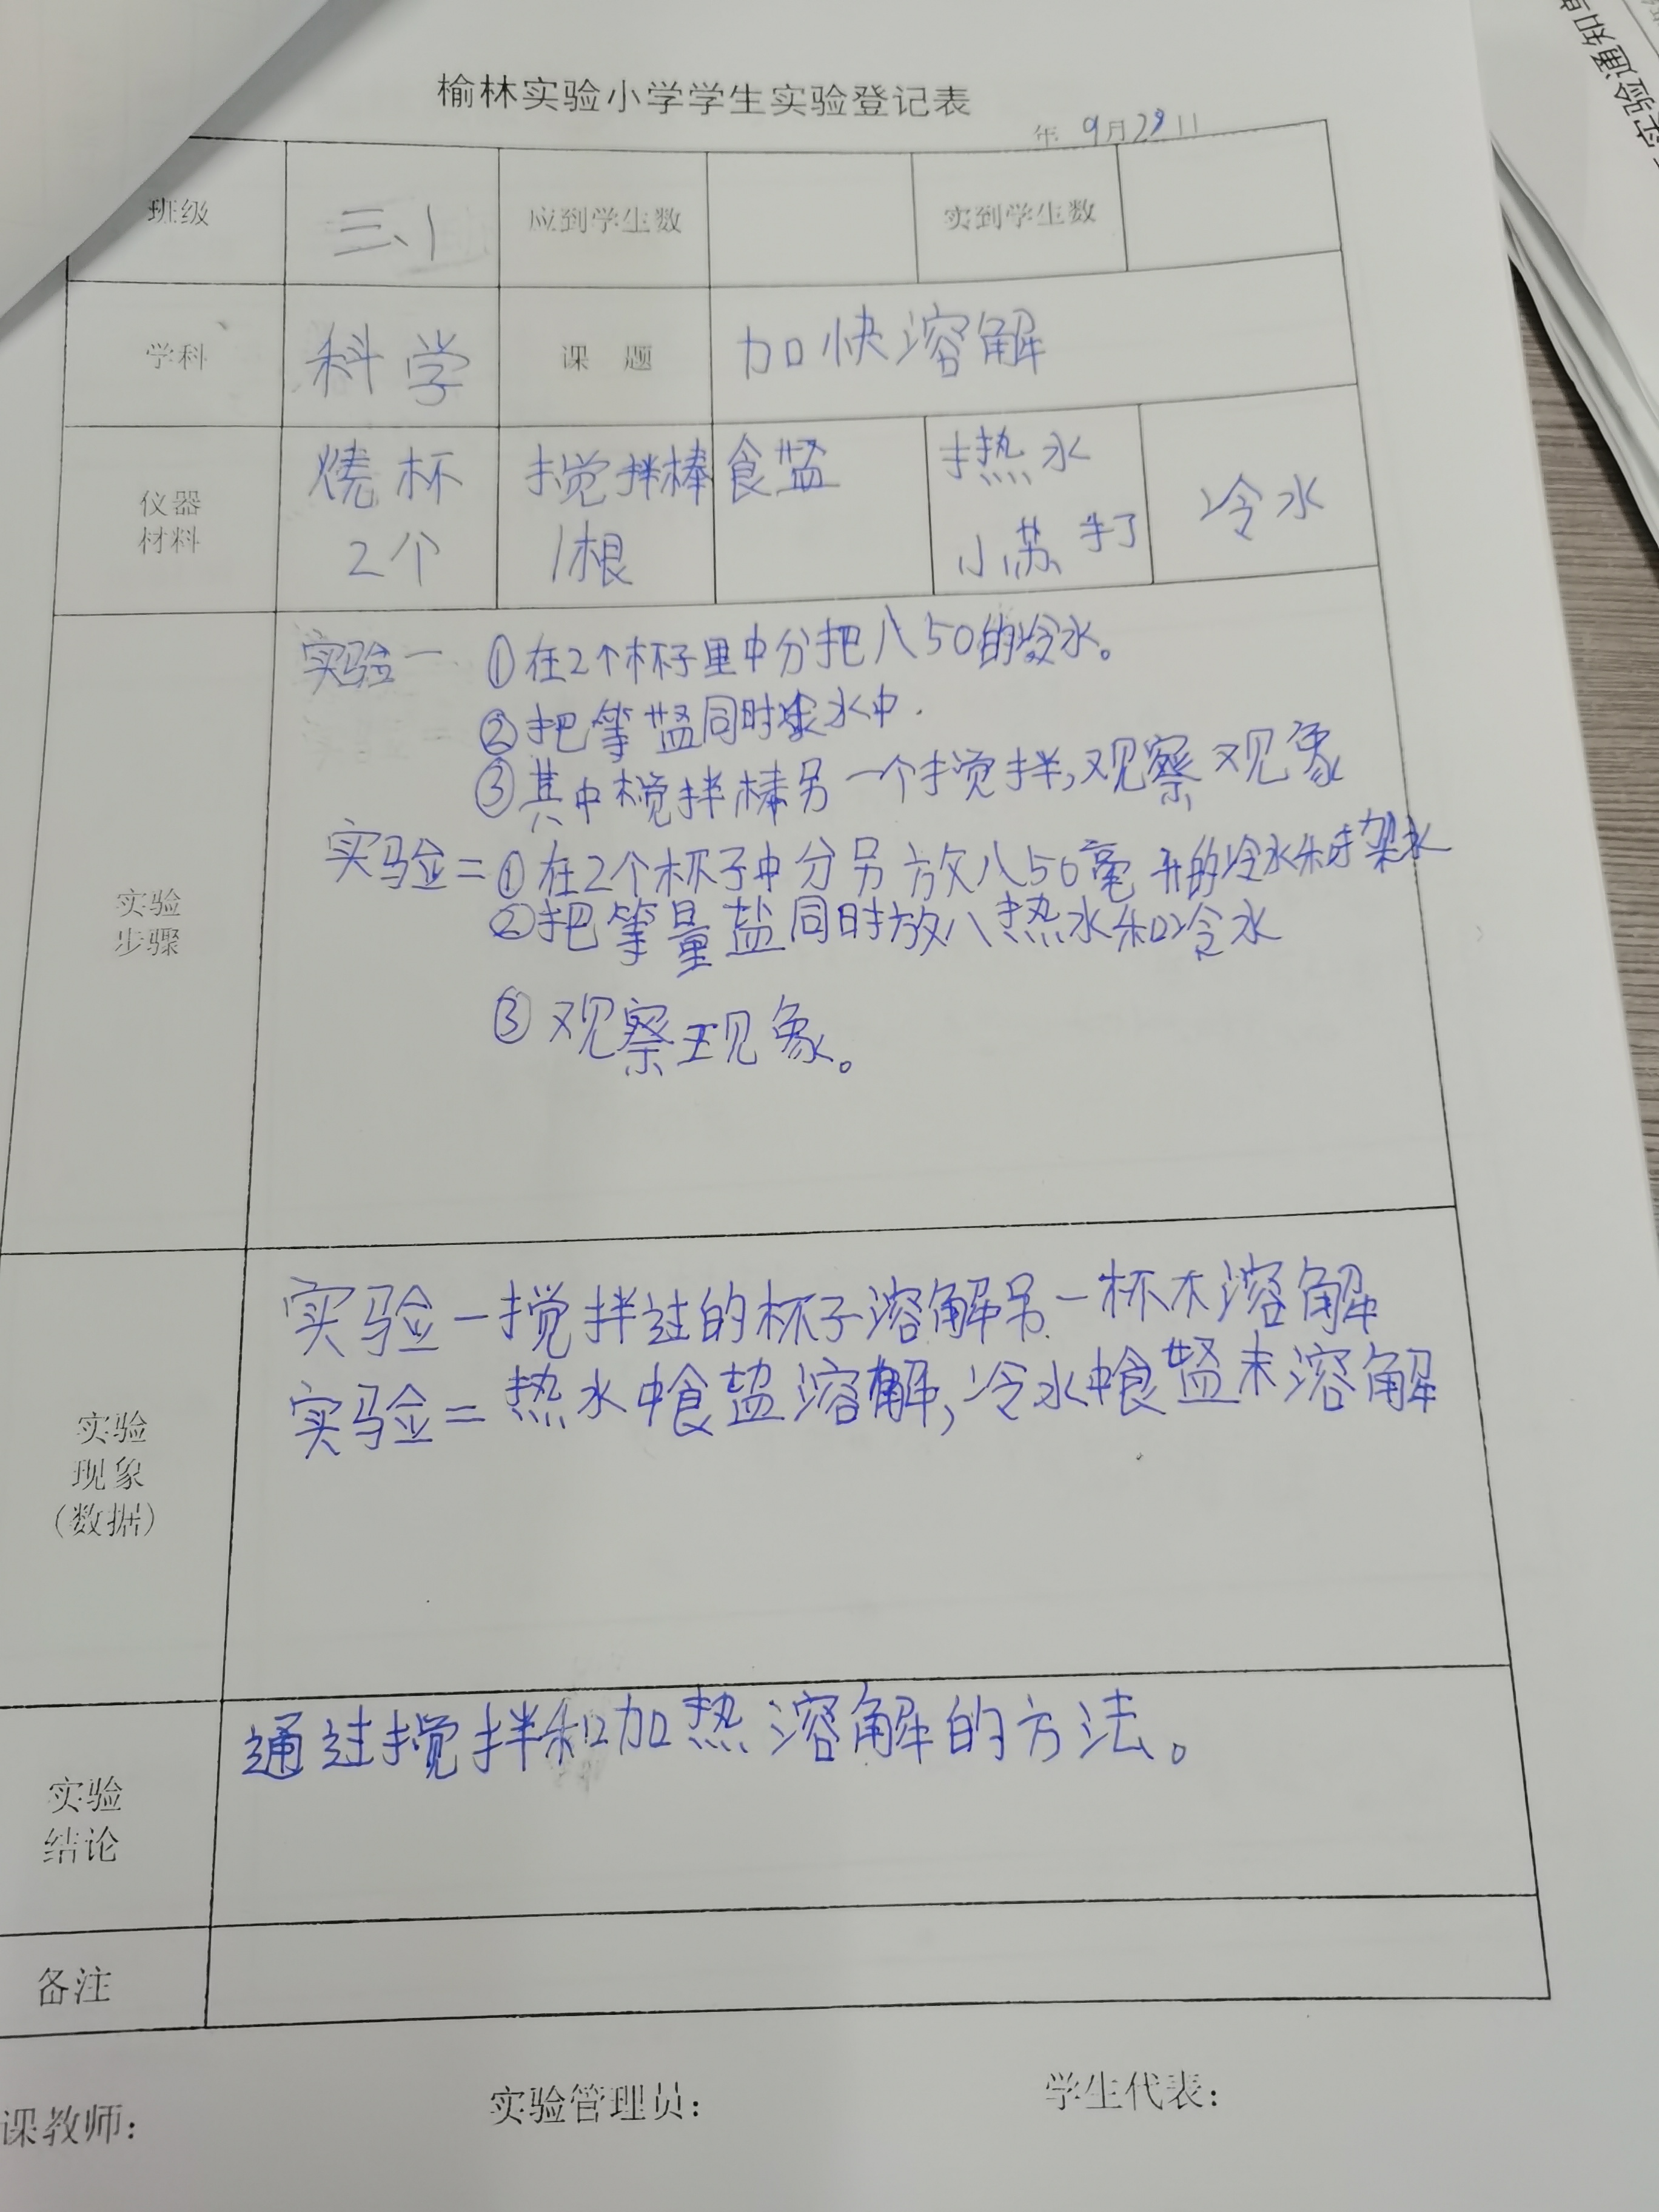 榆林实验小学学生实验登记表
年 9月29日
班级 三、1 应到学生数 实到学生数
学科 科学 课题 加快溶解
仪器 烧杯 搅拌棒 食盐 热水 冷水
材料 2个 1根 小苏打
实验一 ①在2个杯子里中分把八50的冷水。
②把等盐同时水中.
③其中搅拌棒另一个搅拌,观察观象
实验二①在2个杯子中分另放八50毫升的冷水和热水
②把等量盐同时放八热水和冷水
③观察现象。
实验
步骤
实验一搅拌过的杯子溶解另一杯木溶解
实验二热水中食盐溶解,冷水中食盐未溶解
实验
现象
(数据)
通过搅拌和加热溶解的方法。
实验
结论
备注
课教师: 实验管理员: 学生代表:
实验通知